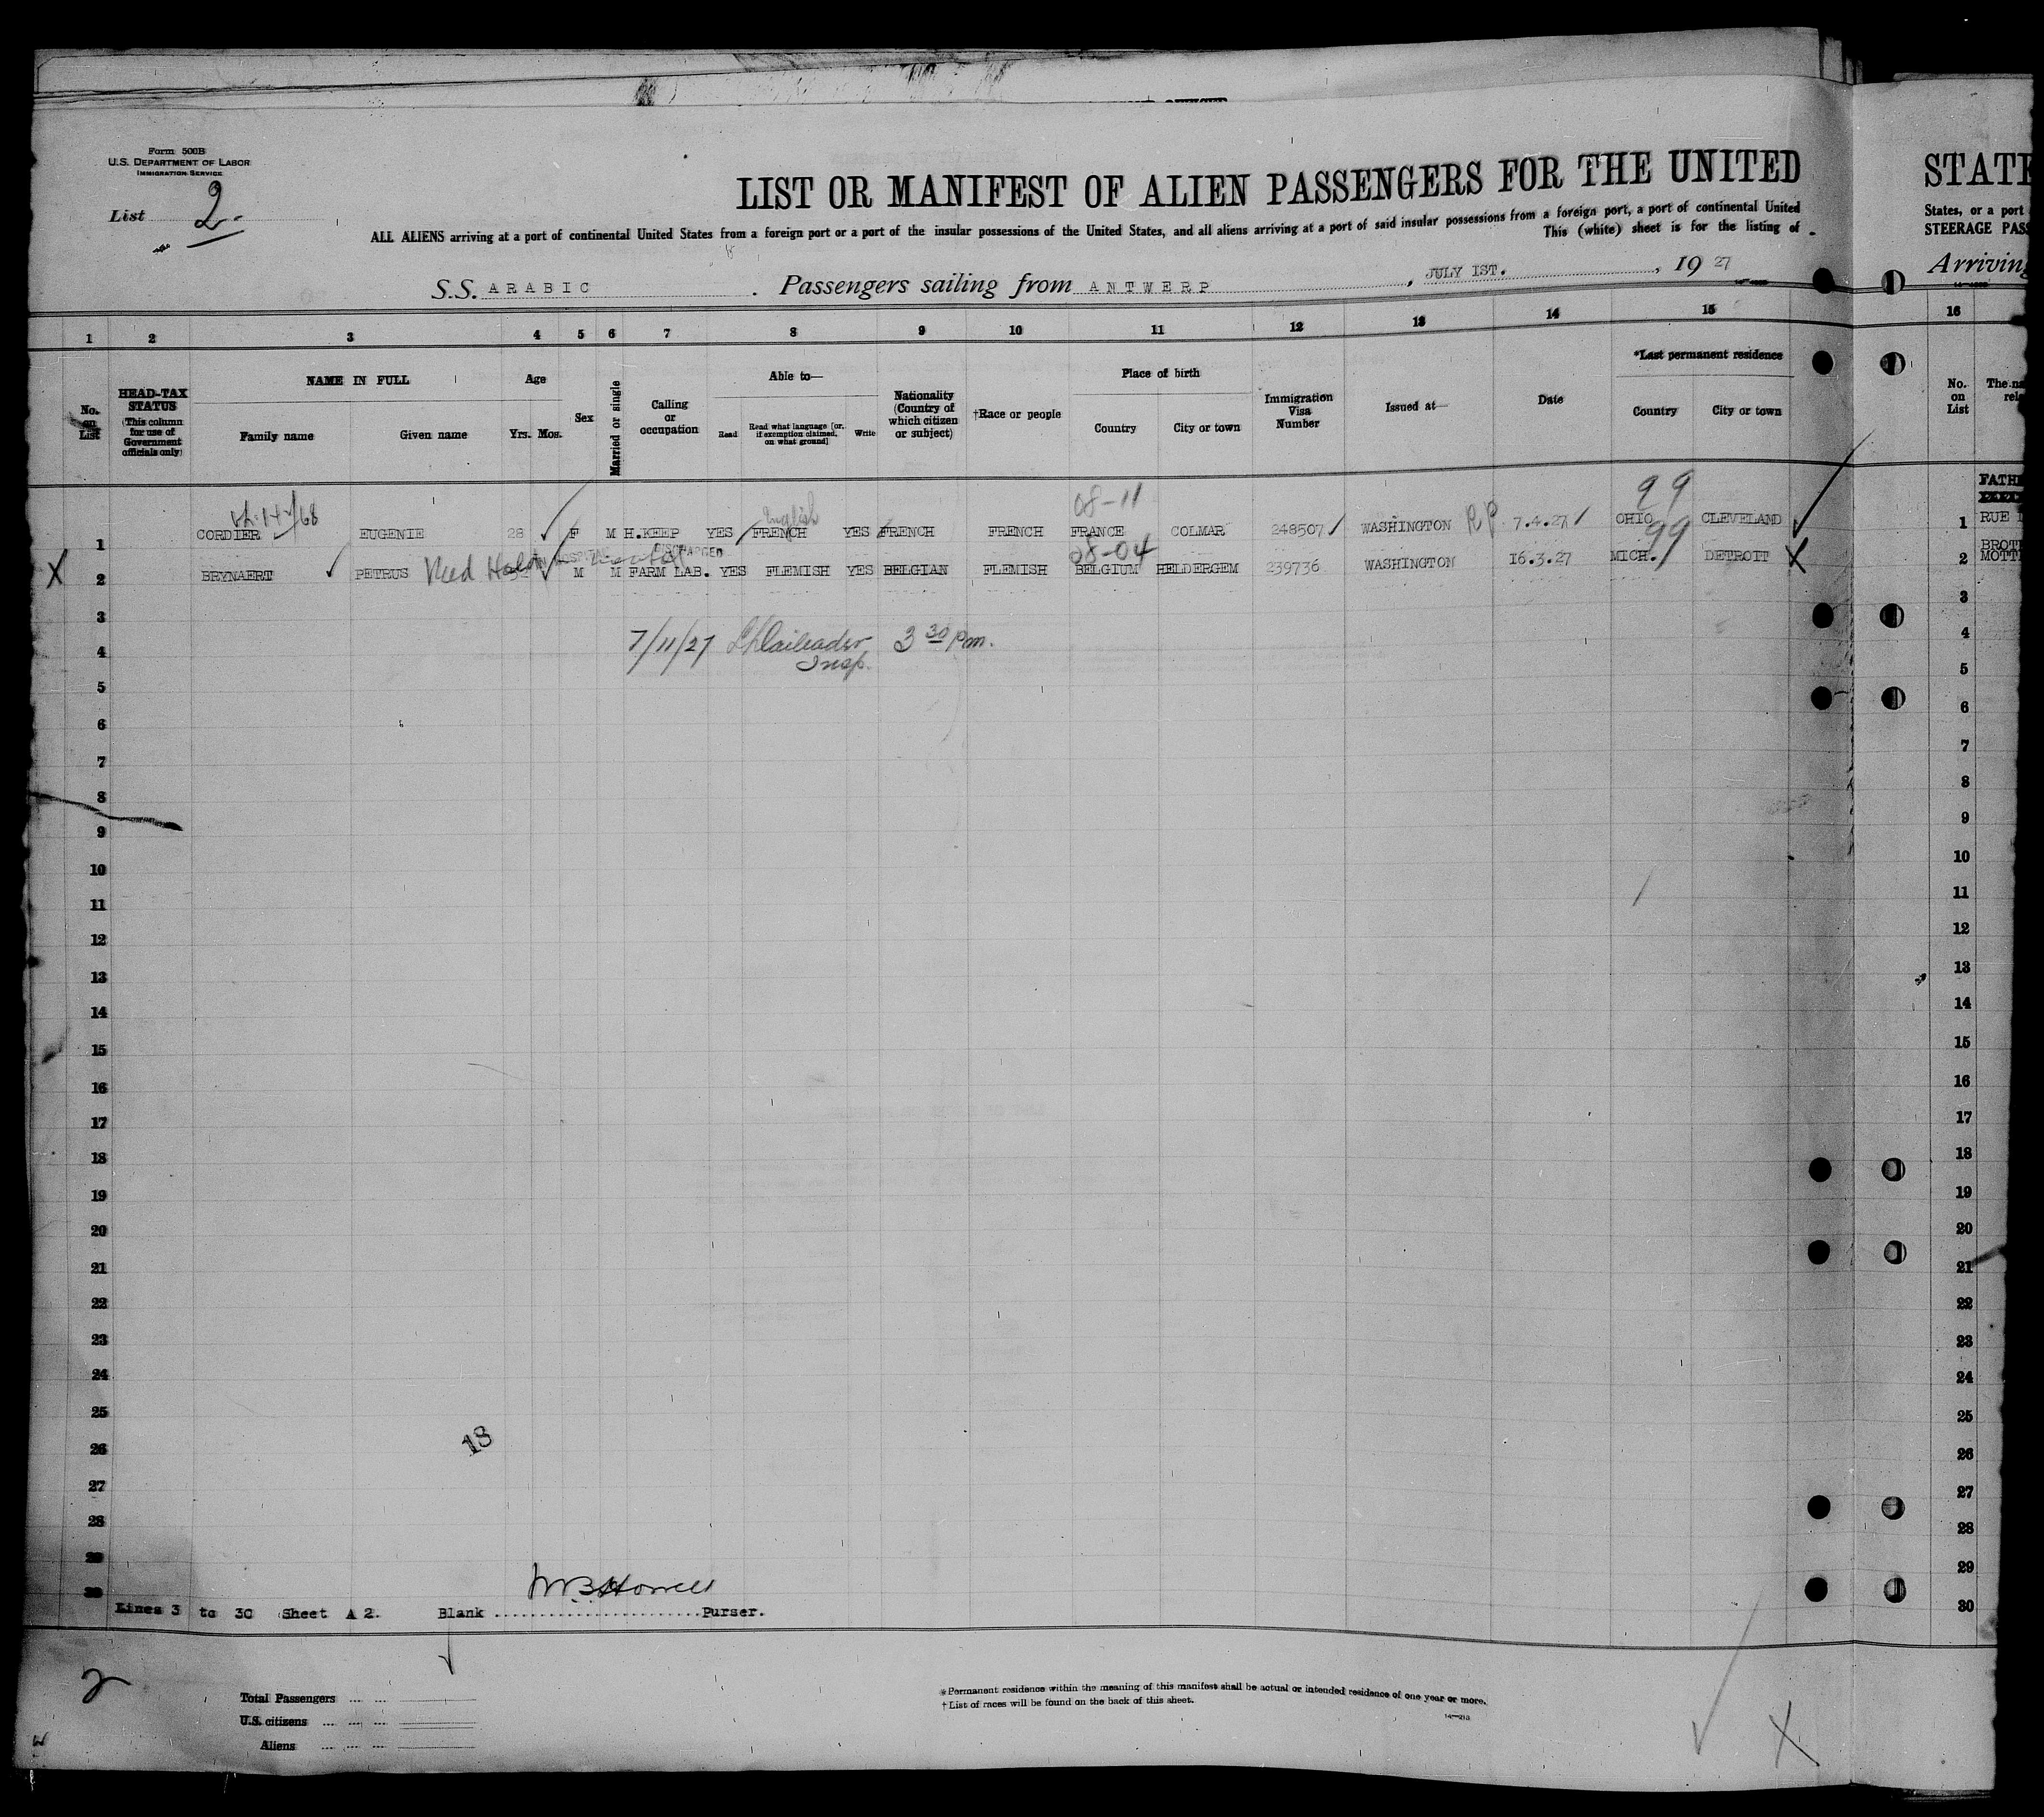 Form 500B
U.S. DEPARTMENT OF LABOR
IMMIGRATION SERVICE
List 2
LIST OR MANIFEST OF ALIEN PASSENGERS FOR THE UNITED
STATE
ALL ALIENS arriving at a port of continental United States from a foreign port or a port of the insular possessions of the United States, and all aliens arriving at a port of said insular possessions from a foreign port, a port of continental United
States, or a port
This (white) sheet is for the listing of
STEERAGE PASS
S.S. ARABIC. Passengers sailing from ANTWERP, JULY 1ST., 1927
Arriving
1 2 3 4 5 6 7 8 9 10 11 12 13 14 15 16
No. on List
HEAD-TAX STATUS (This column for use of Government officials only)
NAME IN FULL
Family name Given name
Age
Yrs. Mos.
Sex
Married or single
Calling or occupation
Able to—
Read Read what language [or, if exemption claimed, on what ground] Write
Nationality (Country of which citizen or subject)
†Race or people
Place of birth
Country City or town
Immigration Visa Number
Issued at—
Date
*Last permanent residence
Country City or town
No. on List
The na
rela
English 08-11 99
1 CORDIER EUGENIE 28 F M H.KEEP YES FRENCH YES FRENCH FRENCH FRANCE COLMAR 248507 WASHINGTON RP 7.4.27 OHIO CLEVELAND 1
FATH
RUE
IN HOSPITAL DISCHARGED 08-04 99
X 2 BRYNAERT PETRUS Med Hold M M FARM LAB. YES FLEMISH YES BELGIAN FLEMISH BELGIUM HELDERGEM 239736 WASHINGTON 16.3.27 MICH. DETROIT X 2
BROT
MOTT
7/11/27 3 30 pm.
Insp.
3 3
4 4
5 5
6 6
7 7
8 8
9 9
10 10
11 11
12 12
13 13
14 14
15 15
16 16
17 17
18 18
19 19
20 20
21 21
22 22
23 23
24 24
25 25
18
26 26
27 27
28 28
29 29
30 30
W B Howell
Lines 3 to 30 Sheet A 2. Blank ........................Purser.
2
Total Passengers
U.S. citizens
Aliens
*Permanent residence within the meaning of this manifest shall be actual or intended residence of one year or more.
†List of races will be found on the back of this sheet.
14—213
X